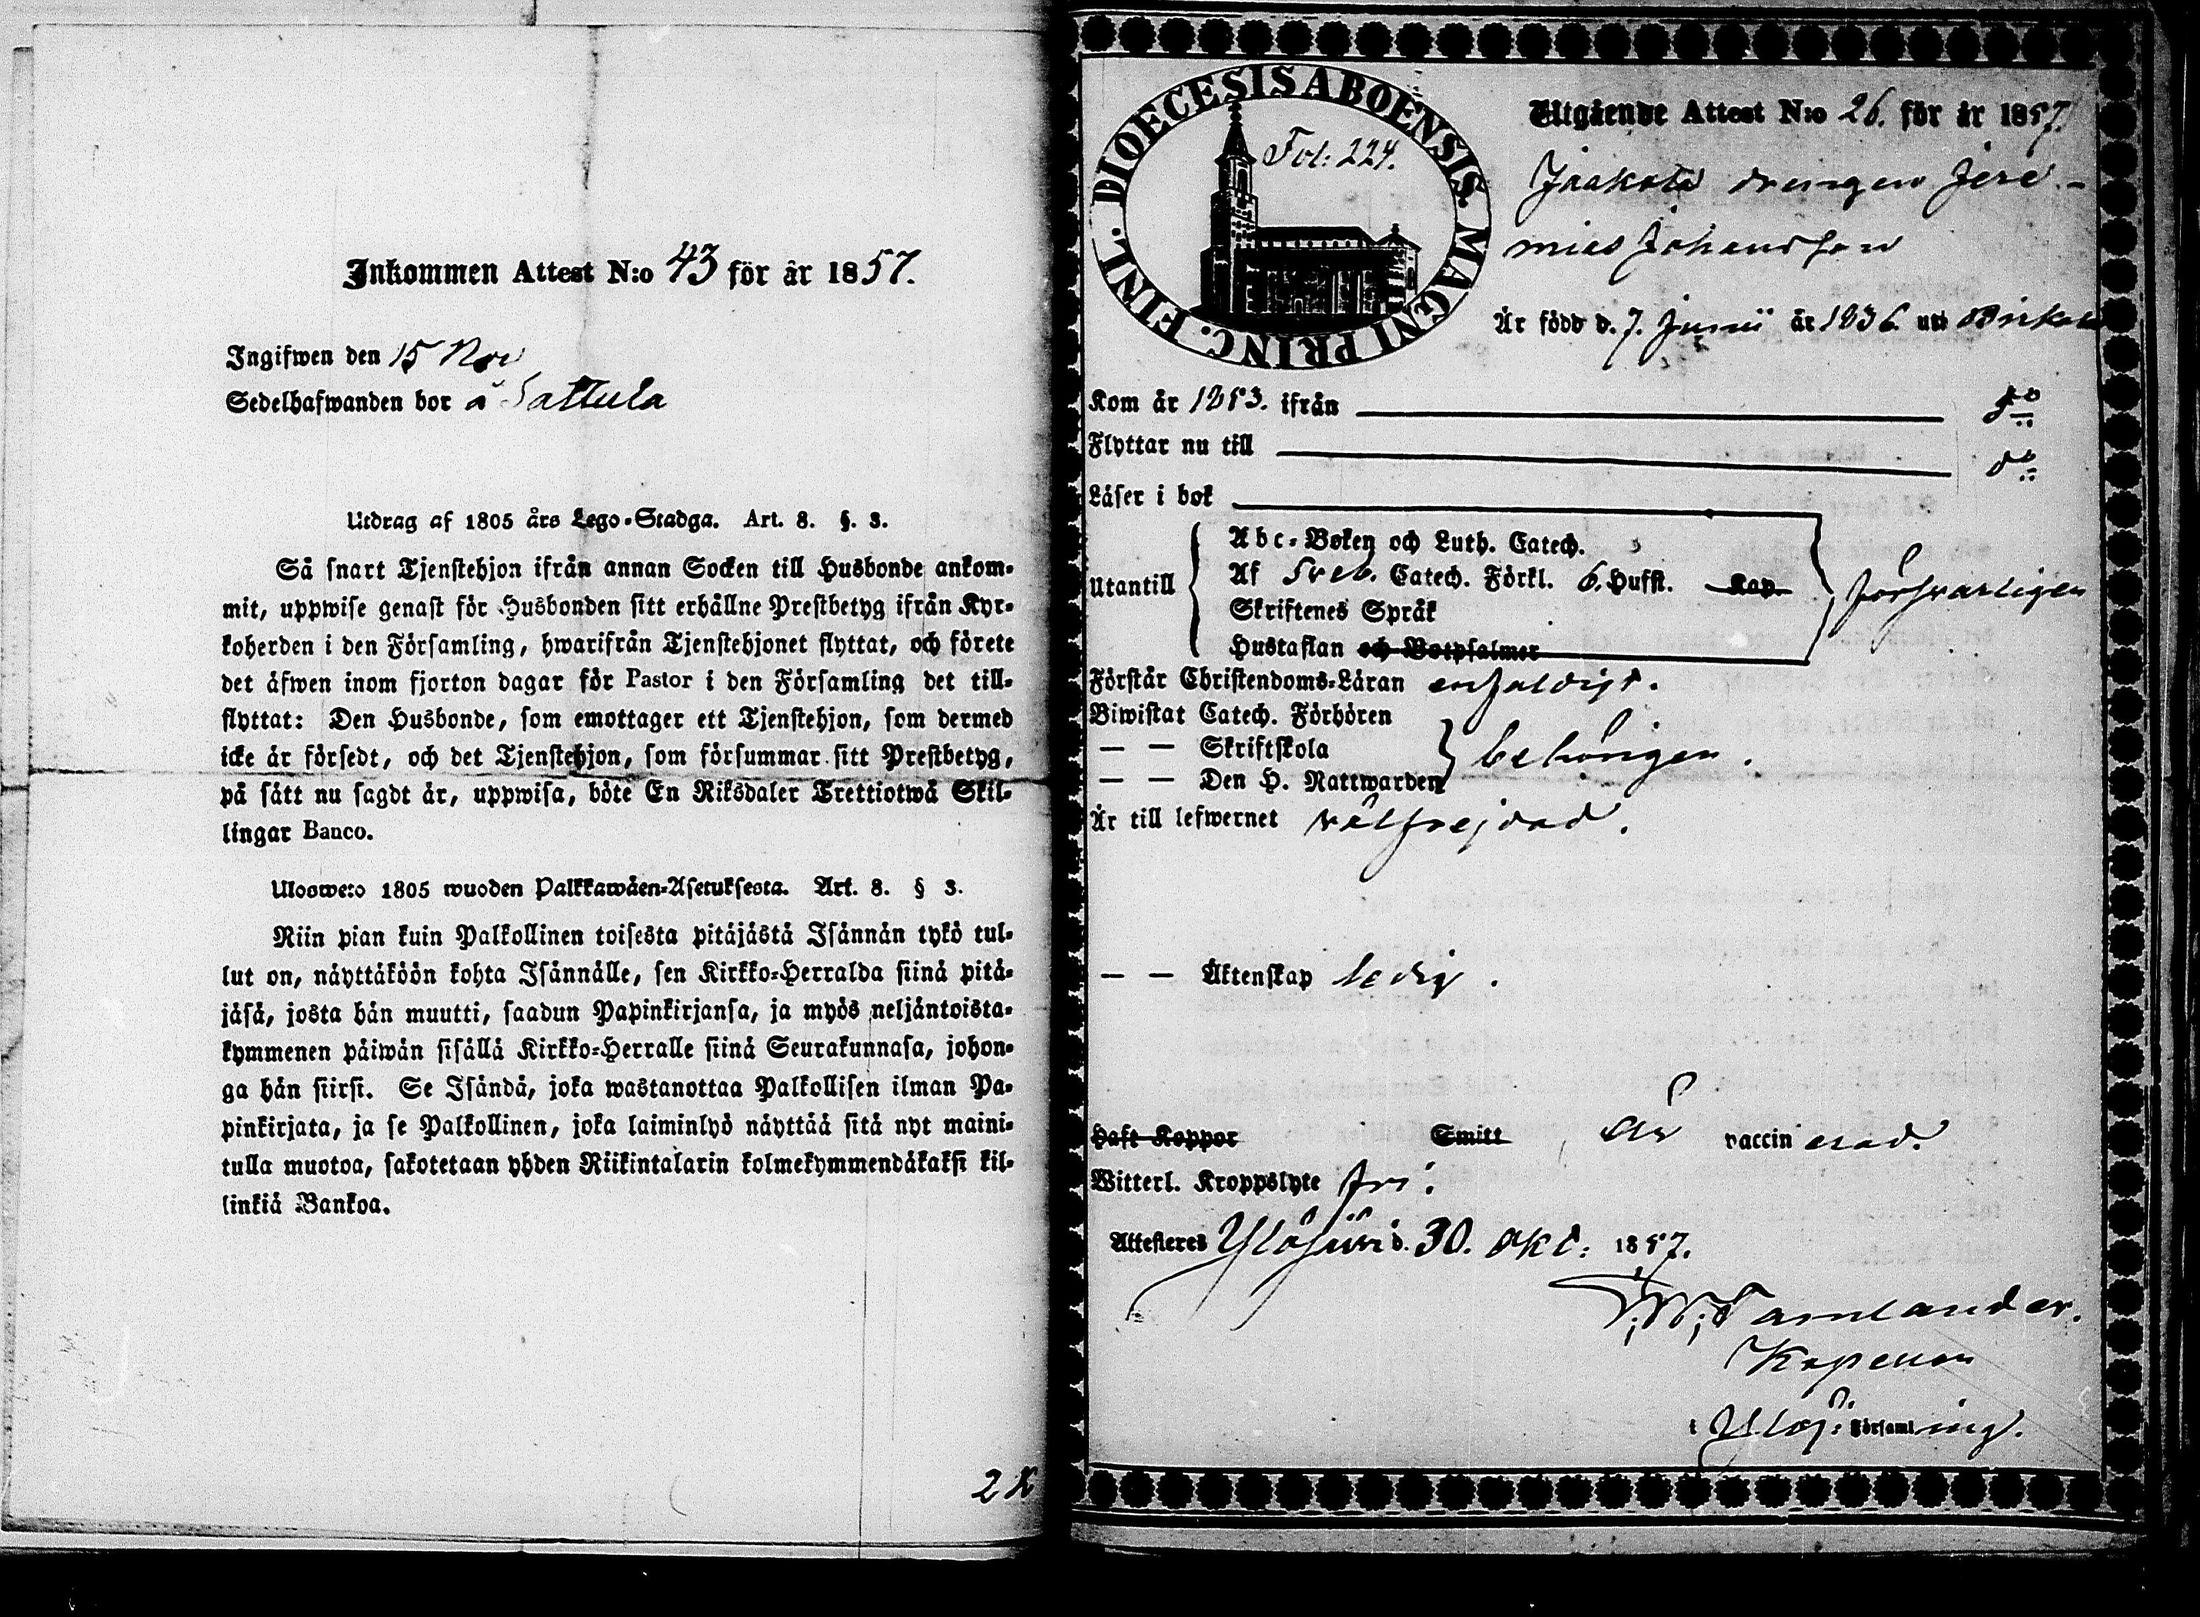 Inkommen Attest N:o 43 för år 1857.
Ingifwen den 15 Nov
Sedelhafwanden bor å Sattula
Utdrag af 1805 års Lego-Stadga. Art. 8. §. 3.
Så snart Tjenstehjon ifrån annan Socken till Husbonde ankom-
mit, uppwise genast för Husbonden sitt erhållne Prestbetyg ifrån Kyr-
koherden i den Församling, hwarifrån Tjenstehjonet flyttat, och förete
det äfwen inom fjorton dagar för Pastor i den Församling det till-
flyttat: Den Husbonde, som emottager ett Tjenstehjon, som dermed
icke är försedt, och det Tjenstehjon, som försummar sitt Prestbetyg,
på sätt nu sagdt är, uppwisa, böte En Riksdaler Trettiotwå Skil-
lingar Banco.
Ulosweto 1805 wuoden Palkkawäen-Asetuksesta. Art. 8. § 3.
Niin pian kuin Palkollinen toisesta pitäjästä Isännän tykö tul-
lut on, näyttäköön kohta Isännälle, sen Kirkko-Herralda siinä pitä-
jäsä, josta hän muutti, saadun Papinkirjansa, ja myös neljäntoista-
kymmenen päiwän sisällä Kirkko-Herralle siinä Seurakunnasa, johon-
ga hän siirsi. Se Isändä, joka wastanottaa Palkollisen ilman Pa-
pinkirjata, ja se Palkollinen, joka laiminlyö näyttää sitä nyt maini-
tulla muotoa, sakotetaan yhden Riikintalarin kolmekymmendäkaksi kil-
linkiä Bankoa.
DIOECESIS ABOENSIS. MAGNI PRINC. FINL.
Fol: 224.
Utgående Attest N:o 26. för år 1857.
Jaakola drengen Jere-
mias Johansson
Är född d. 7. Junii år 1836. uti
Kom år 1853. ifrån
Flyttar nu till
Läser i bok
Utantill
Abc-Boken och Luth. Catech.
Af Sveb. Catech. Förkl. 6. Hufst. Kap.
Skriftenes Språk
Hustaflan och Botpsalmer
försvarligen
Förstår Christendoms-Läran enfaldigt.
Biwistat Catech. Förhören
— — Skriftskola
— — Den H. Nattwarden
behörigen.
Är till lefwernet välfrejdad.
— — Äktenskap ledig.
Haft Koppor Smitt Är vaccinerad.
Witterl. Kroppslyte fri.
Attesteres Ylöjärvi d. 30. Okt: 1857.
Tamlander.
Kapellan
i Ylöj: Församling.